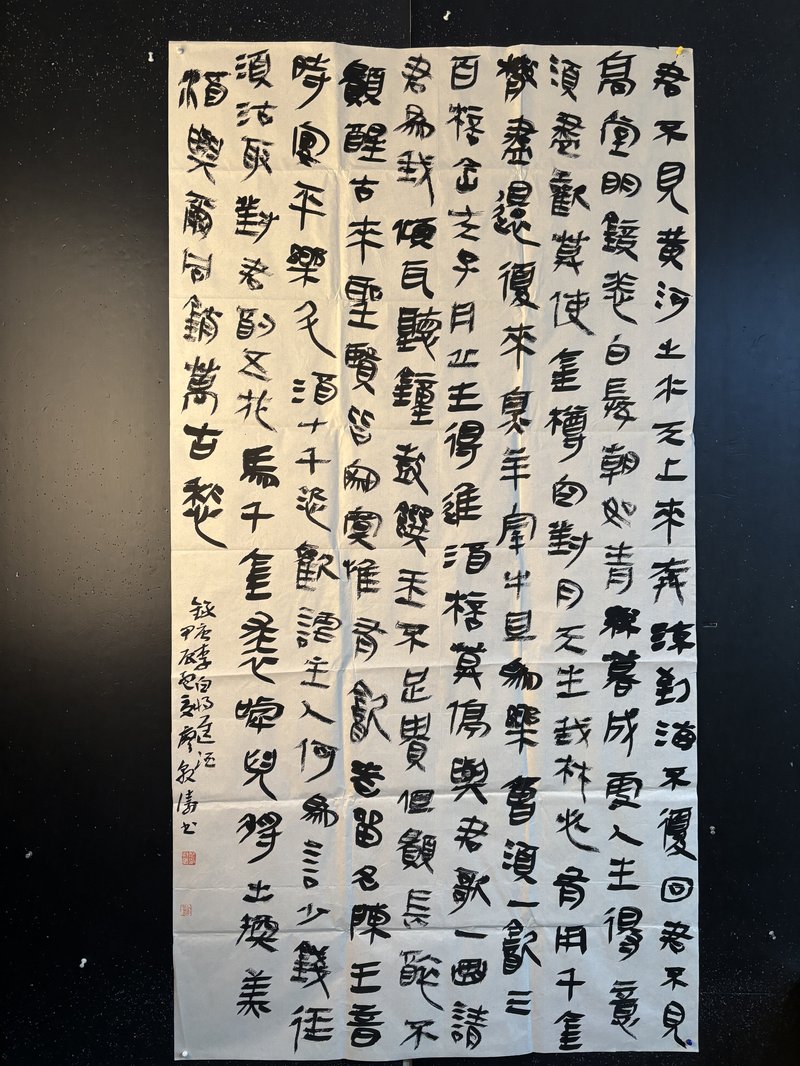 君不見黃河之水天上來奔流到海不復回君不見
高堂明鏡悲白髮朝如青絲暮成雪人生得意
須盡歡莫使金樽空對月天生我材必有用千金
散盡還復來烹羊宰牛且為樂會須一飲三
百桮岑夫子丹丘生將進酒桮莫停與君歌一曲請
君為我傾耳聽鐘鼓饌玉不足貴但願長醉不
願醒古來聖賢皆寂寞惟有飲者留名陳王昔
時宴平樂斗酒十千恣歡謔主人何為言少錢徑
須沽取對君酌五花馬千金裘呼兒將出換美
酒與爾同銷萬古愁
錄唐李白將進酒
甲辰孟夏廖敏濤書